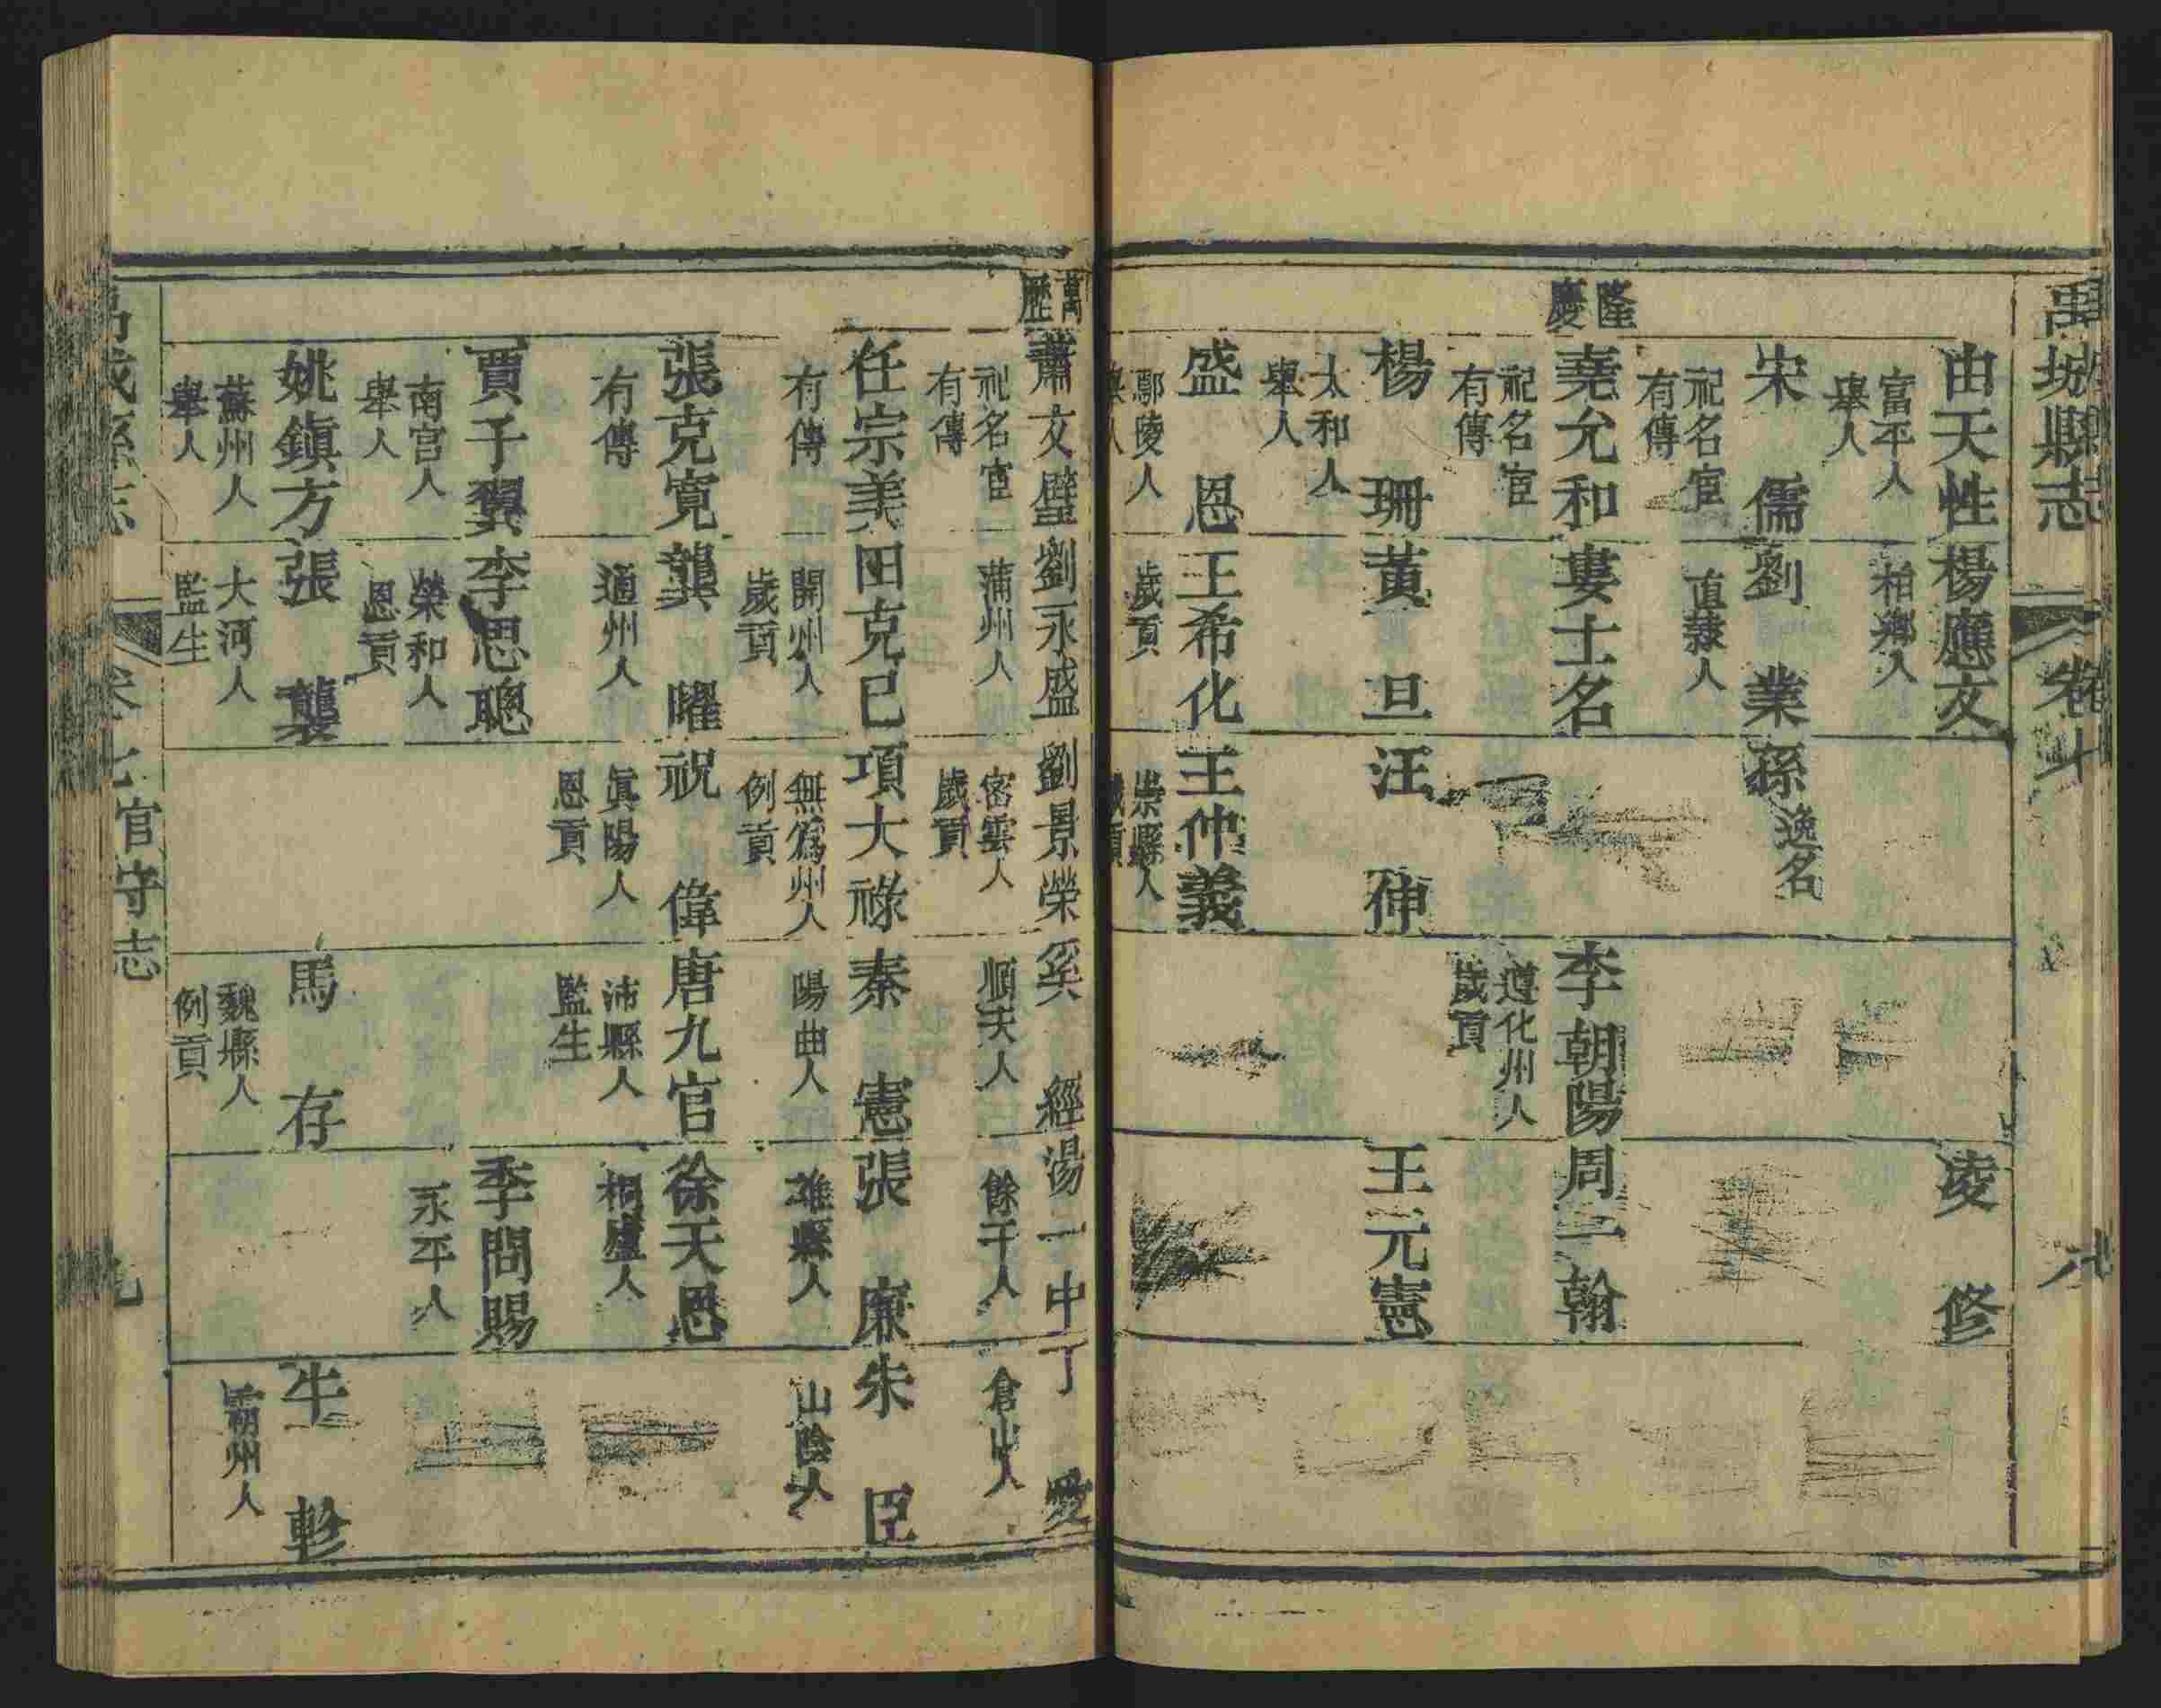 禹城縣志
卷七
八
由天性
楊應文
凌修
富平人
舉人
柏鄉人
宋儒
劉業
孫逸名
祀名宦
有傳
直隸人
隆慶
堯允和
婁士名
李朝陽
周一翰
祀名宦
有傳
遵化州人
歲貢
楊珊
黃旦
汪伸
王元憲
太和人
舉人
盛恩
王希化
王仲義
鄢陵人
舉人
歲貢
崇縣人
歲貢
萬歷
蕭文璧
劉永盛
劉景榮
奚經
湯一中
丁愛
祀名宦
有傳
蒲州人
密雲人
歲貢
順天人
餘干人
倉山人
任宗美
田克己
項大祿
秦憲
張廉
朱臣
有傳
開州人
歲貢
無爲州人
例貢
陽曲人
雄縣人
山陰人
張克寬
龔曜
祝偉
唐九官
徐天恩
有傳
通州人
眞陽人
恩貢
沛縣人
監生
桐廬人
賈子翼
李思聰
季問賜
南宫人
舉人
榮和人
恩貢
永平人
姚鎮方
張襲
馬存
牛軫
蘇州人
舉人
大河人
監生
魏縣人
例貢
霸州人
官守志